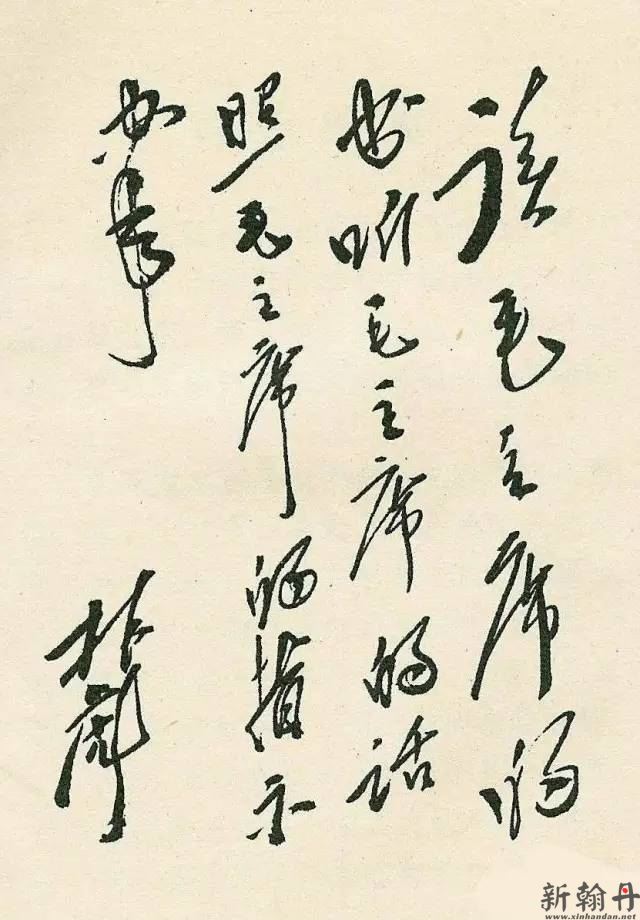 读毛主席的
书听毛主席的话
照毛主席的指示
办事
林彪
新翰丹
www.xinhandan.net